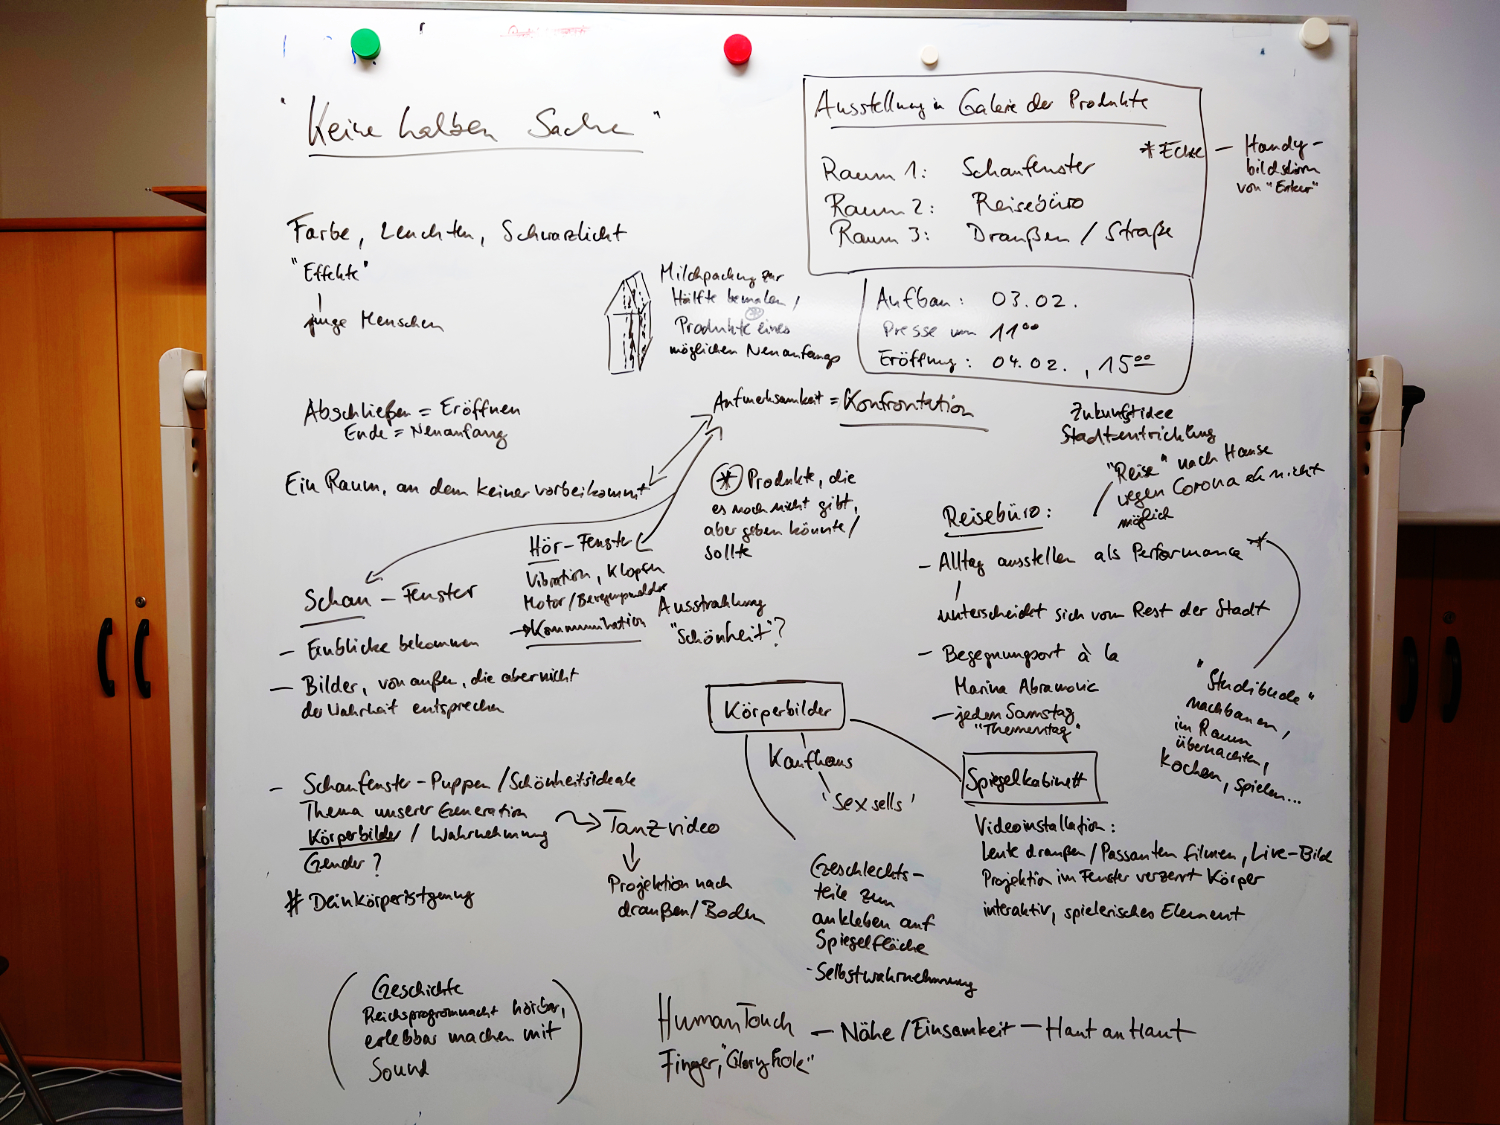 "Keine halben Sache"
Ausstellung in Galerie der Produkte
Raum 1: Schaufenster
Raum 2: Reisebüro
Raum 3: Draußen / Straße
* Ecke — Handy-
bildschirm
von "Erker"
Aufbau: 03.02.
Presse um 11⁰⁰
Eröffnung: 04.02., 15⁰⁰
Farbe, Leuchten, Schwarzlicht
"Effekte"
junge Menschen
Milchpackung zur
Hälfte bemalen /
Produkte eines
möglichen Neuanfangs
Abschließen = Eröffnen
Ende = Neuanfang
Aufmerksamkeit = Konfrontation
Ein Raum, an dem keiner vorbeikommt
* Produkte, die
es noch nicht gibt,
aber geben könnte /
sollte
Zukunftsidee
Stadtentwicklung
"Reise" nach Hause
wegen Corona eh nicht
möglich
Hör-Fenster
Vibration, Klopfen
Motor /
→ Kommunikation
Ausstrahlung
"Schönheit"?
Schau-Fenster
— Einblicke bekommen
— Bilder, von außen, die aber nicht
der Wahrheit entsprechen
Reisebüro:
— Alltag ausstellen als Performance *
unterscheidet sich vom Rest der Stadt
— Begegnungsort à la
Marina Abramovic
— jeden Samstag
"Thementag"
"Studibude"
nachbauen,
im Raum
übernachten,
kochen, spielen...
- Schaufenster-Puppen / Schönheitsideale
Thema unserer Generation
Körperbilder / Wahrnehmung
Gender?
# Deinkörperistgenug
Tanzvideo
Projektion nach
draußen / Boden
Körperbilder
Kaufhaus
'Sex sells'
Geschlechts-
teile zum
ankleben auf
Spiegelfläche
- Selbstwahrnehmung
Spiegelkabinett
Videoinstallation:
Leute draußen / Passanten filmen, Live-Bild
Projektion im Fenster verzerrt Körper
interaktiv, spielerisches Element
(Geschichte
Reichsprogromnacht hörbar,
erlebbar machen mit
Sound)
Human Touch — Nähe / Einsamkeit — Haut an Haut
Finger, "Glory hole"